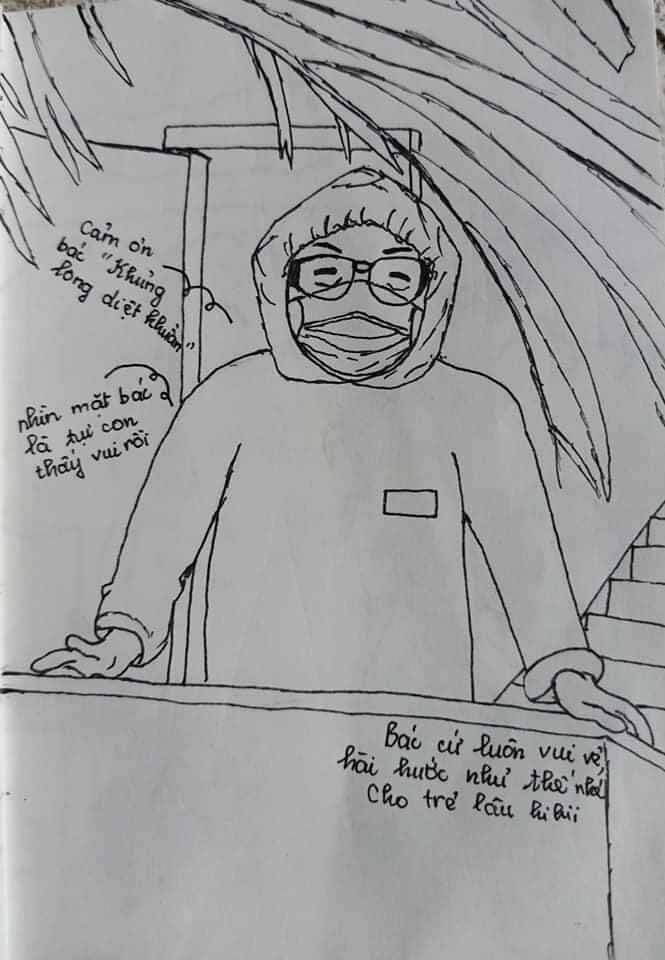 Cảm ơn
bác "Khủng
long diệt khuẩn"
nhìn mặt bác
là tự con
thấy vui rồi
Bác cứ luôn vui vẻ,
hài hước như thế nhé
Cho trẻ lâu hihii